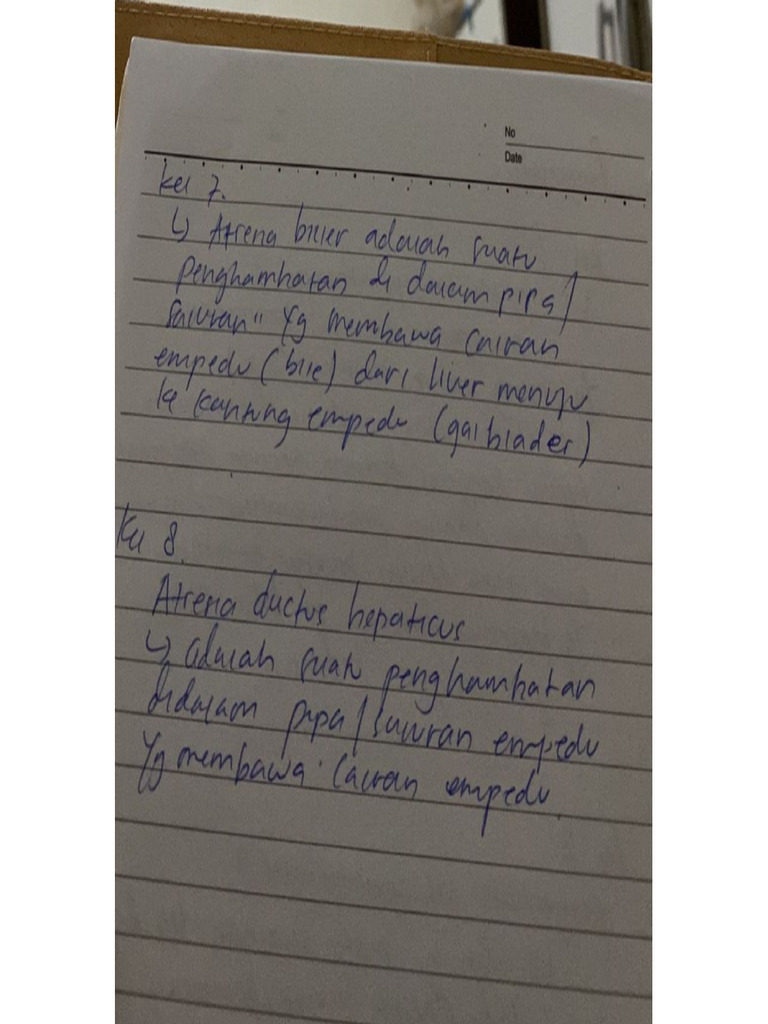 No
Date
Kel 7.
↳ Atresia bilier adalah suatu
penghambatan di dalam pipa/
saluran" yg membawa cairan
empedu (bile) dari liver menuju
ke kantung empedu (gallblader)
Kel 8.
Atresia ductus hepaticus
↳ adalah suatu penghambatan
didalam pipa/saluran empedu
Yg membawa cairan empedu.